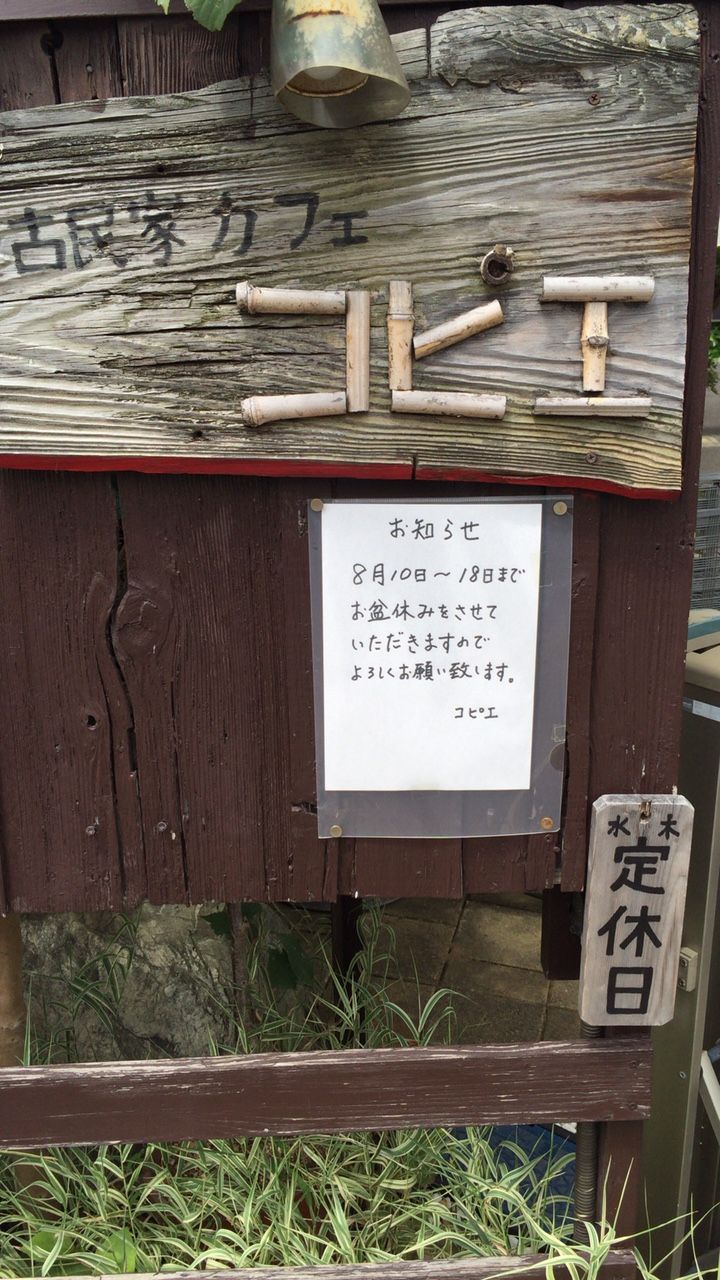 古民家カフェ
コピエ
お知らせ
8月10日~18日まで
お盆休みをさせて
いただきますので
よろしくお願い致します。
コピエ
水木
定休日